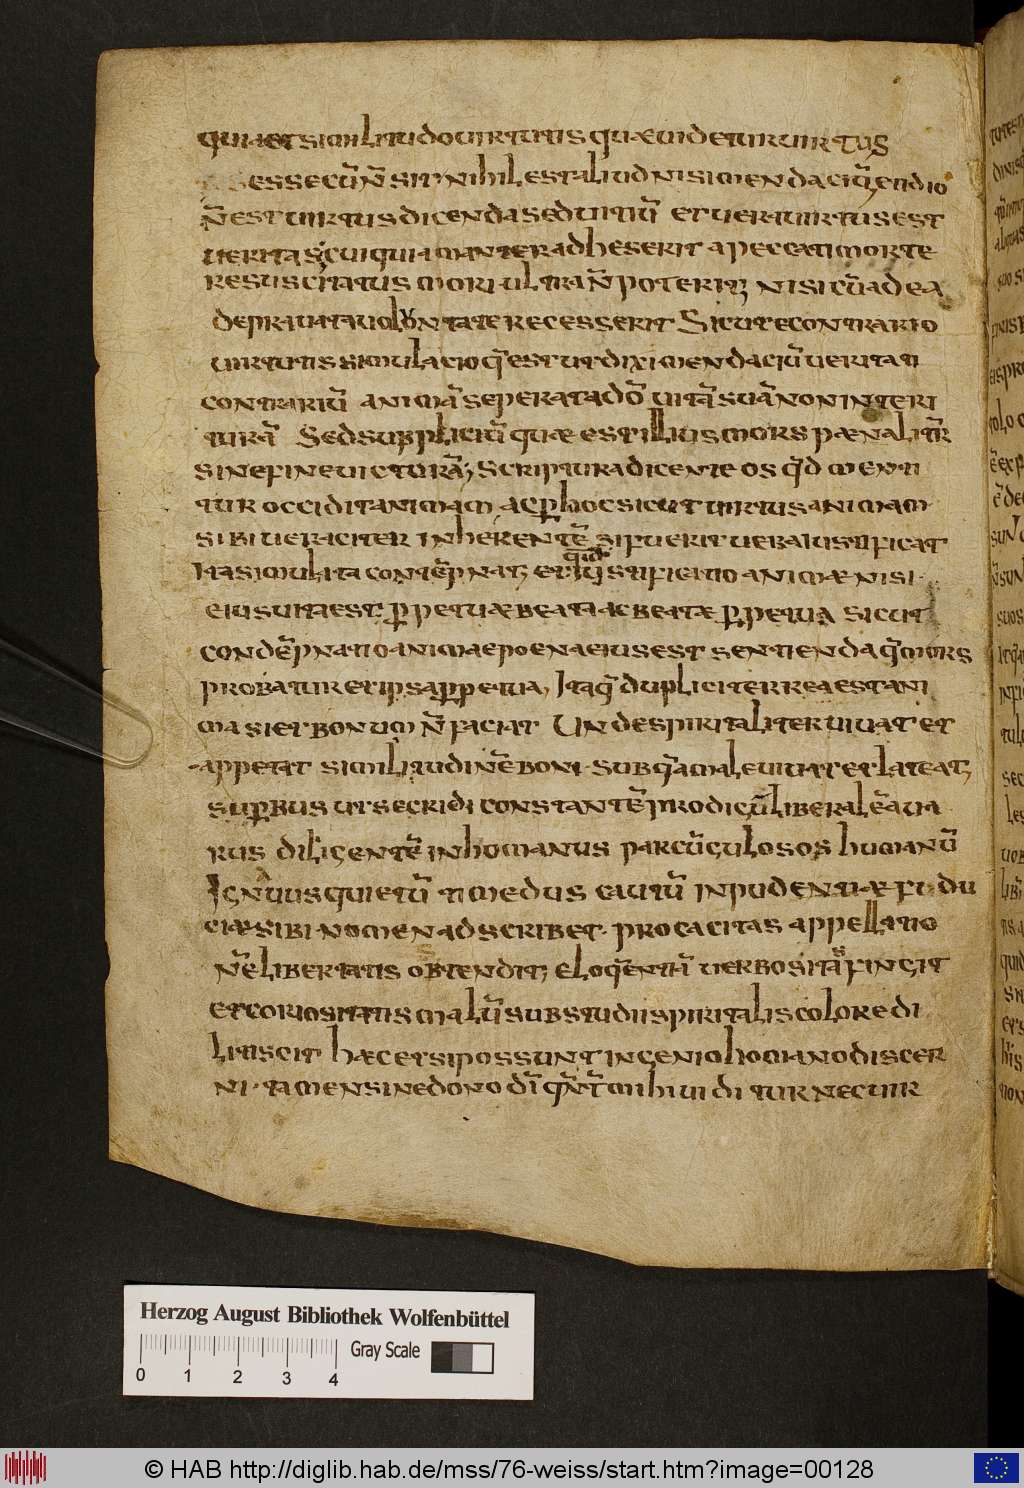 quia et similitudo uirtutis quæ uidetur uirtus
esse cū n̄ sit nihil est aliud nisi mendaciū, et ideo
n̄ est uirtus dicenda sed uitiū et uera uirtus est
ueritas cui quia manter adheserit a peccati morte
resuscitatus mori ultra n̄ poterit, nisi cū a dea
deprauata uoluntate recesserit Sicut e contrario
uirtutis simulacio q̄ est ut dixi mendaciū ueritati
contrariū animā seperata dō uitā suā non interi
turā Sed supliciū quæ est illius mors pænalit̄r
sine fine uicturā, scriptura dicente os qđ menti
tur occidit animam ac p hoc sicut uirtus animam
sibi ueraciter inherentē si fuerit uera iustificat
Ita simulita contēpnat, et quid iustificatio animæ nisi
eius uita est ppetuæ beata ac beatæ ppetua sicut
condēpnatio animae poena eius est sentienda q̄ mors
probatur et ipsa ppetua, Itaq̄ dupliciter rea est ani
ma si et bonum n̄ faciat Unde spiritaliter uiuat et
appetat similitudinē boni sub q̄ a male uiuit et lateat,
supbus ut se cridi constantē prodigū liberalē aua
rus diligentē inhomanus parcū gulosos humanū
Ignuus quietū timedus cautū inpudentiæ fidu
ciæ sibi nomen adscribet procacitas appellatio
nē libertatis obtendit, eloq̄entiā uerbositas fingit
et coriositatis malū sub studii spiritalis colore di
litiscit hæc etsi possunt ingenio homano discer
ni tamen sine dono dī q̄nt̄ mihi uiditur nec uir
Herzog August Bibliothek Wolfenbüttel
Gray Scale
0 1 2 3 4
© HAB http://diglib.hab.de/mss/76-weiss/start.htm?image=00128